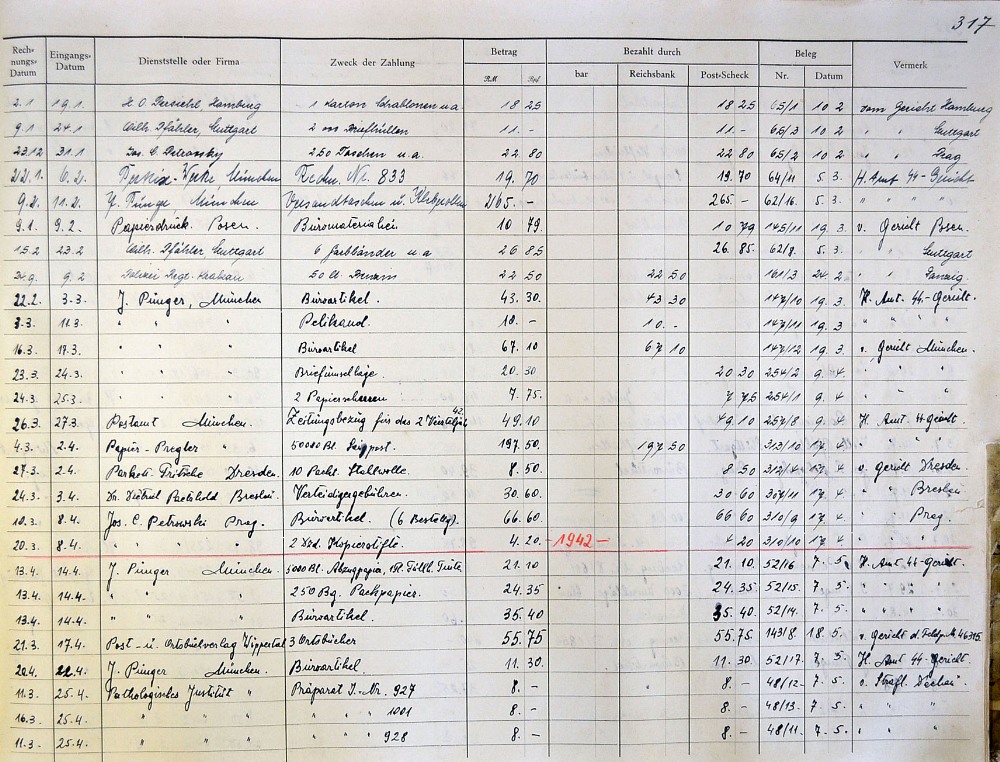 317
Rechnungs-Datum Eingangs-Datum Dienststelle oder Firma Zweck der Zahlung Betrag RM Rpf Bezahlt durch bar Reichsbank Post-Scheck Beleg Nr. Datum Vermerk
2.1 19.1. Hamburg 1 Karton Schablonen u.a. 18 25 18 25 65/1 10 2 vom Gericht Hamburg
9.1 24.1. Wilh. Pfähler, Stuttgart 2 Briefhüllen 11.- 11.- 65/3 10 2 " " Stuttgart
23.12 31.1. Jos. C. Petrowsky 250 Taschen u.a. 22 80 22 80 65/2 10 2 " " Prag
22.1. 6.2. Werke, München Rechn. Nr. 833 19. 70 19. 70 64/11 5. 3. H. Amt SS-Gericht
9.2. 11.2. J. Pünger München Versandtaschen u. 265.- 265.- 62/16. 5. 3. " " "
9.1. 9.2. Papierdruck. Posen. Büromaterialien 10 79. 10 79 145/11 19. 3 v. Gericht Posen.
15.2 23.2. Wilh. Pfähler, Stuttgart 6 Farbbänder u a 26 85 26. 85. 62/8. 5. 3. " " Stuttgart
9.2 Krakau 22 50 22 50 161/3 24 2 " " Danzig
22.2. 3.3. J. Pünger, München Büroartikel. 43. 30. 43 30 147/10 19. 3. H. Amt. SS.-Gericht.
3.3. 11.3. " " " Pelikanol. 10. - 10. - 147/11 19. 3 " " "
16.3. 17.3. " " " Büroartikel 67. 10 67 10 147/12 19. 3. v. Gericht München.
23.3. 24.3. " " " Briefumschläge. 20. 30 20 30 254/2 9. 4. " "
24.3. 25.3. " " " 2 Papierscheren 7. 75. 7 75 254/1 9. 4. " "
26.3. 27.3. Postamt München. Zeitungsbezug für das 2 Vierteljahr 42. 49. 10 49 10 257/8 9. 4. H. Amt SS-Gericht.
4.3. 2.4. Papier - Pregler 50000 Bl. 197. 50. 197 50 313/10 17. 4 " " "
27.3. 2.4. Parkett Fritsche Dresden. 10 Packt. Stahlwolle. 8. 50. 8 50 312/4 17. 4 v. Gericht Dresden.
24.3. 3.4. Dr. Dietrich Paetzhold Breslau. Verteidigergebühren. 30. 60. 30 60 307/11 17. 4. " " Breslau
10.3. 8.4. Jos. C. Petrowski Prag. Büroartikel. (6 Bestellg). 66. 60. 66 60 310/9 17. 4. " " Prag.
20.3. 8.4. " " " 2 Dzd. Kopierstifte. 4. 20. -1942- 4 20 310/10 17. 4 " "
13.4. 14.4. J. Pünger München. 5000 Bl. Abzugpapier, 1 Fl. Füllh. Tinte 21. 10 21. 10. 52/16 7. 5. H. Amt SS-Gericht.
13.4. 14.4. " " " 250 Bg. Packpapier. 24. 35 24. 35. 52/15. 7. 5. " " "
13.4. 14.4. " " " Büroartikel. 35. 40 35. 40. 52/14. 7. 5. " " "
21.3. 17.4. Post - u. Ortsbuchverlag Wuppertal 3 Ortsbücher 55. 75 55. 75. 143/8 18. 5. v. Gericht d. Feldp. Nr 46315
20.4. 22.4. J. Pünger München. Büroartikel 11. 30. 11. 30. 52/17. 7. 5. H. Amt SS-Gericht.
11.3. 25.4. Pathologisches Institut " Präparat J.-Nr. 927 8. - 8. - 48/12- 7. 5. v. Strafl. Dachau.
16.3. 25.4. " " " " " 1001 8. - 8. - 48/13. 7. 5. " "
11.3. 25.4. " " " " " 928 8. - 8. - 48/11. 7. 5. " "